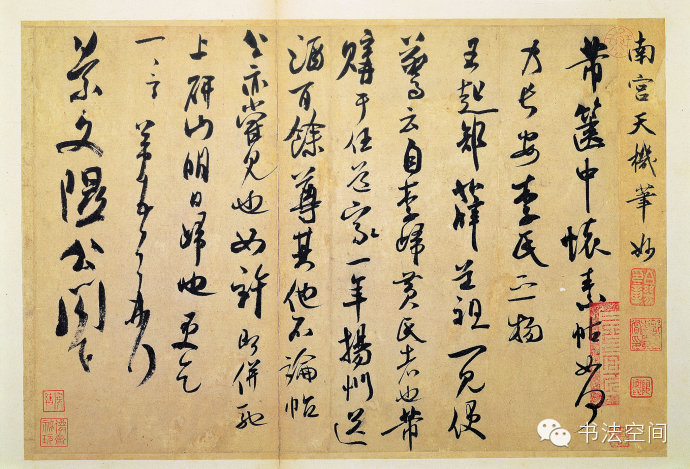 南宮天機筆妙
芾篋中懷素帖如何
乃長安李氏之物
王起部薛道祖一見便
驚云自李歸黃氏者也芾
購于任道家一年揚州送
酒百餘尊其他不論帖
公亦嘗見也如許即併馳
上研山明日歸也更乞
一一言芾頓首再拜
景文隰公閣下
书法空间